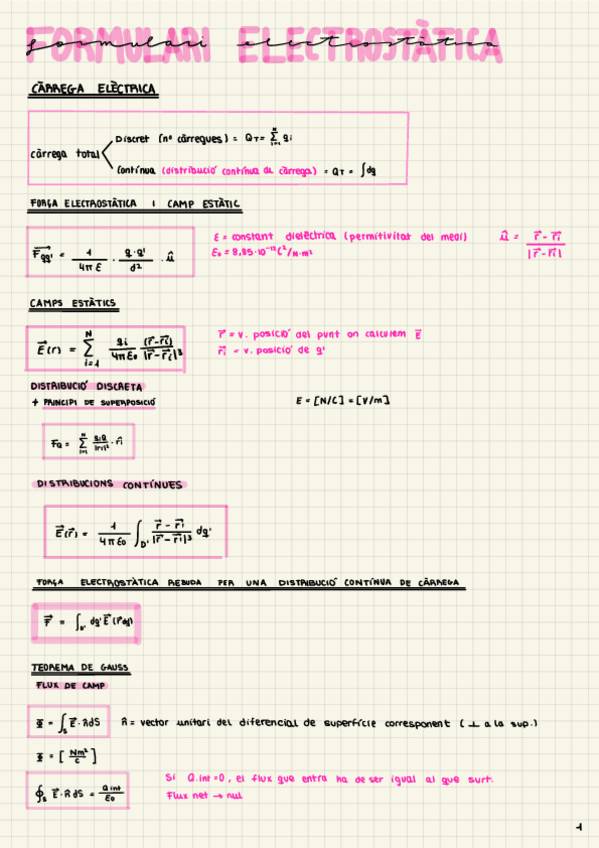 FORMULARI ELECTROSTÀTICA
formulari electrostàtica
CÀRREGA ELÈCTRICA
càrrega total
Discret (nº càrregues) = Q_T = Σ_{i=1}^{n} q_i
Contínua (distribució contínua de càrrega) = Q_T = ∫dq
FORÇA ELECTROSTÀTICA I CAMP ESTÀTIC
F⃗_{qq'} = 1/(4πε) · (q·q')/d² · û
ε = constant dielèctrica (permitivitat del medi)
ε₀ = 8,85·10⁻¹² C²/N·m²
û = (r⃗ - r⃗i)/|r⃗ - r⃗i|
CAMPS ESTÀTICS
E⃗(r) = Σ_{i=1}^{N} qi/(4πε₀) (r⃗-r⃗i)/|r⃗-r⃗i|³
r⃗ = v. posició del punt on calculem E⃗
r⃗i = v. posició de q'
DISTRIBUCIÓ DISCRETA
+ PRINCIPI DE SUPERPOSICIÓ
E = [N/C] = [V/m]
F_Q = Σ_{i=1}^{N} qiQ/|ri|² · r̂i
DISTRIBUCIONS CONTÍNUES
E⃗(r⃗) = 1/(4πε₀) ∫_{D'} (r⃗ - r⃗i)/|r⃗ - r⃗i|³ dq'
FORÇA ELECTROSTÀTICA REBUDA PER UNA DISTRIBUCIÓ CONTÍNUA DE CÀRREGA
F⃗ = ∫ dq' E⃗
TEOREMA DE GAUSS
FLUX DE CAMP
Φ = ∫_S E⃗·n̂dS
n̂ = vector unitari del diferencial de superfície corresponent (⊥ a la sup.)
Φ = [Nm²/C]
∮_S E⃗·n̂dS = Q int/ε₀
Si Q.int=0, el flux que entra ha de ser igual al que surt.
Flux net → nul
1